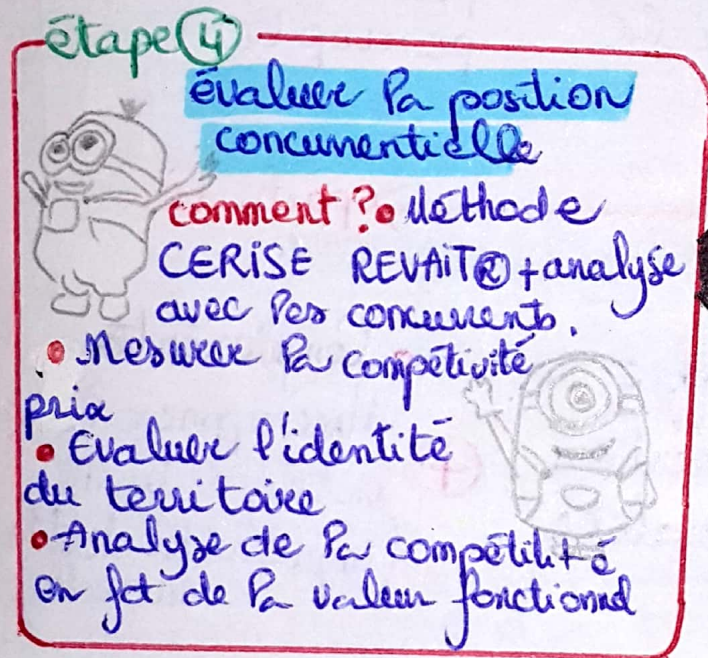 étape 4
évaluer la position
concurrentielle
comment ? • Méthode
CERISE REVAIT® + analyse
avec les concurrents.
• Mesurer la compétivité
prix
• Evaluer l'identité
du territoire
• Analyse de la compétitité
en fct de la valeur fonctionnel